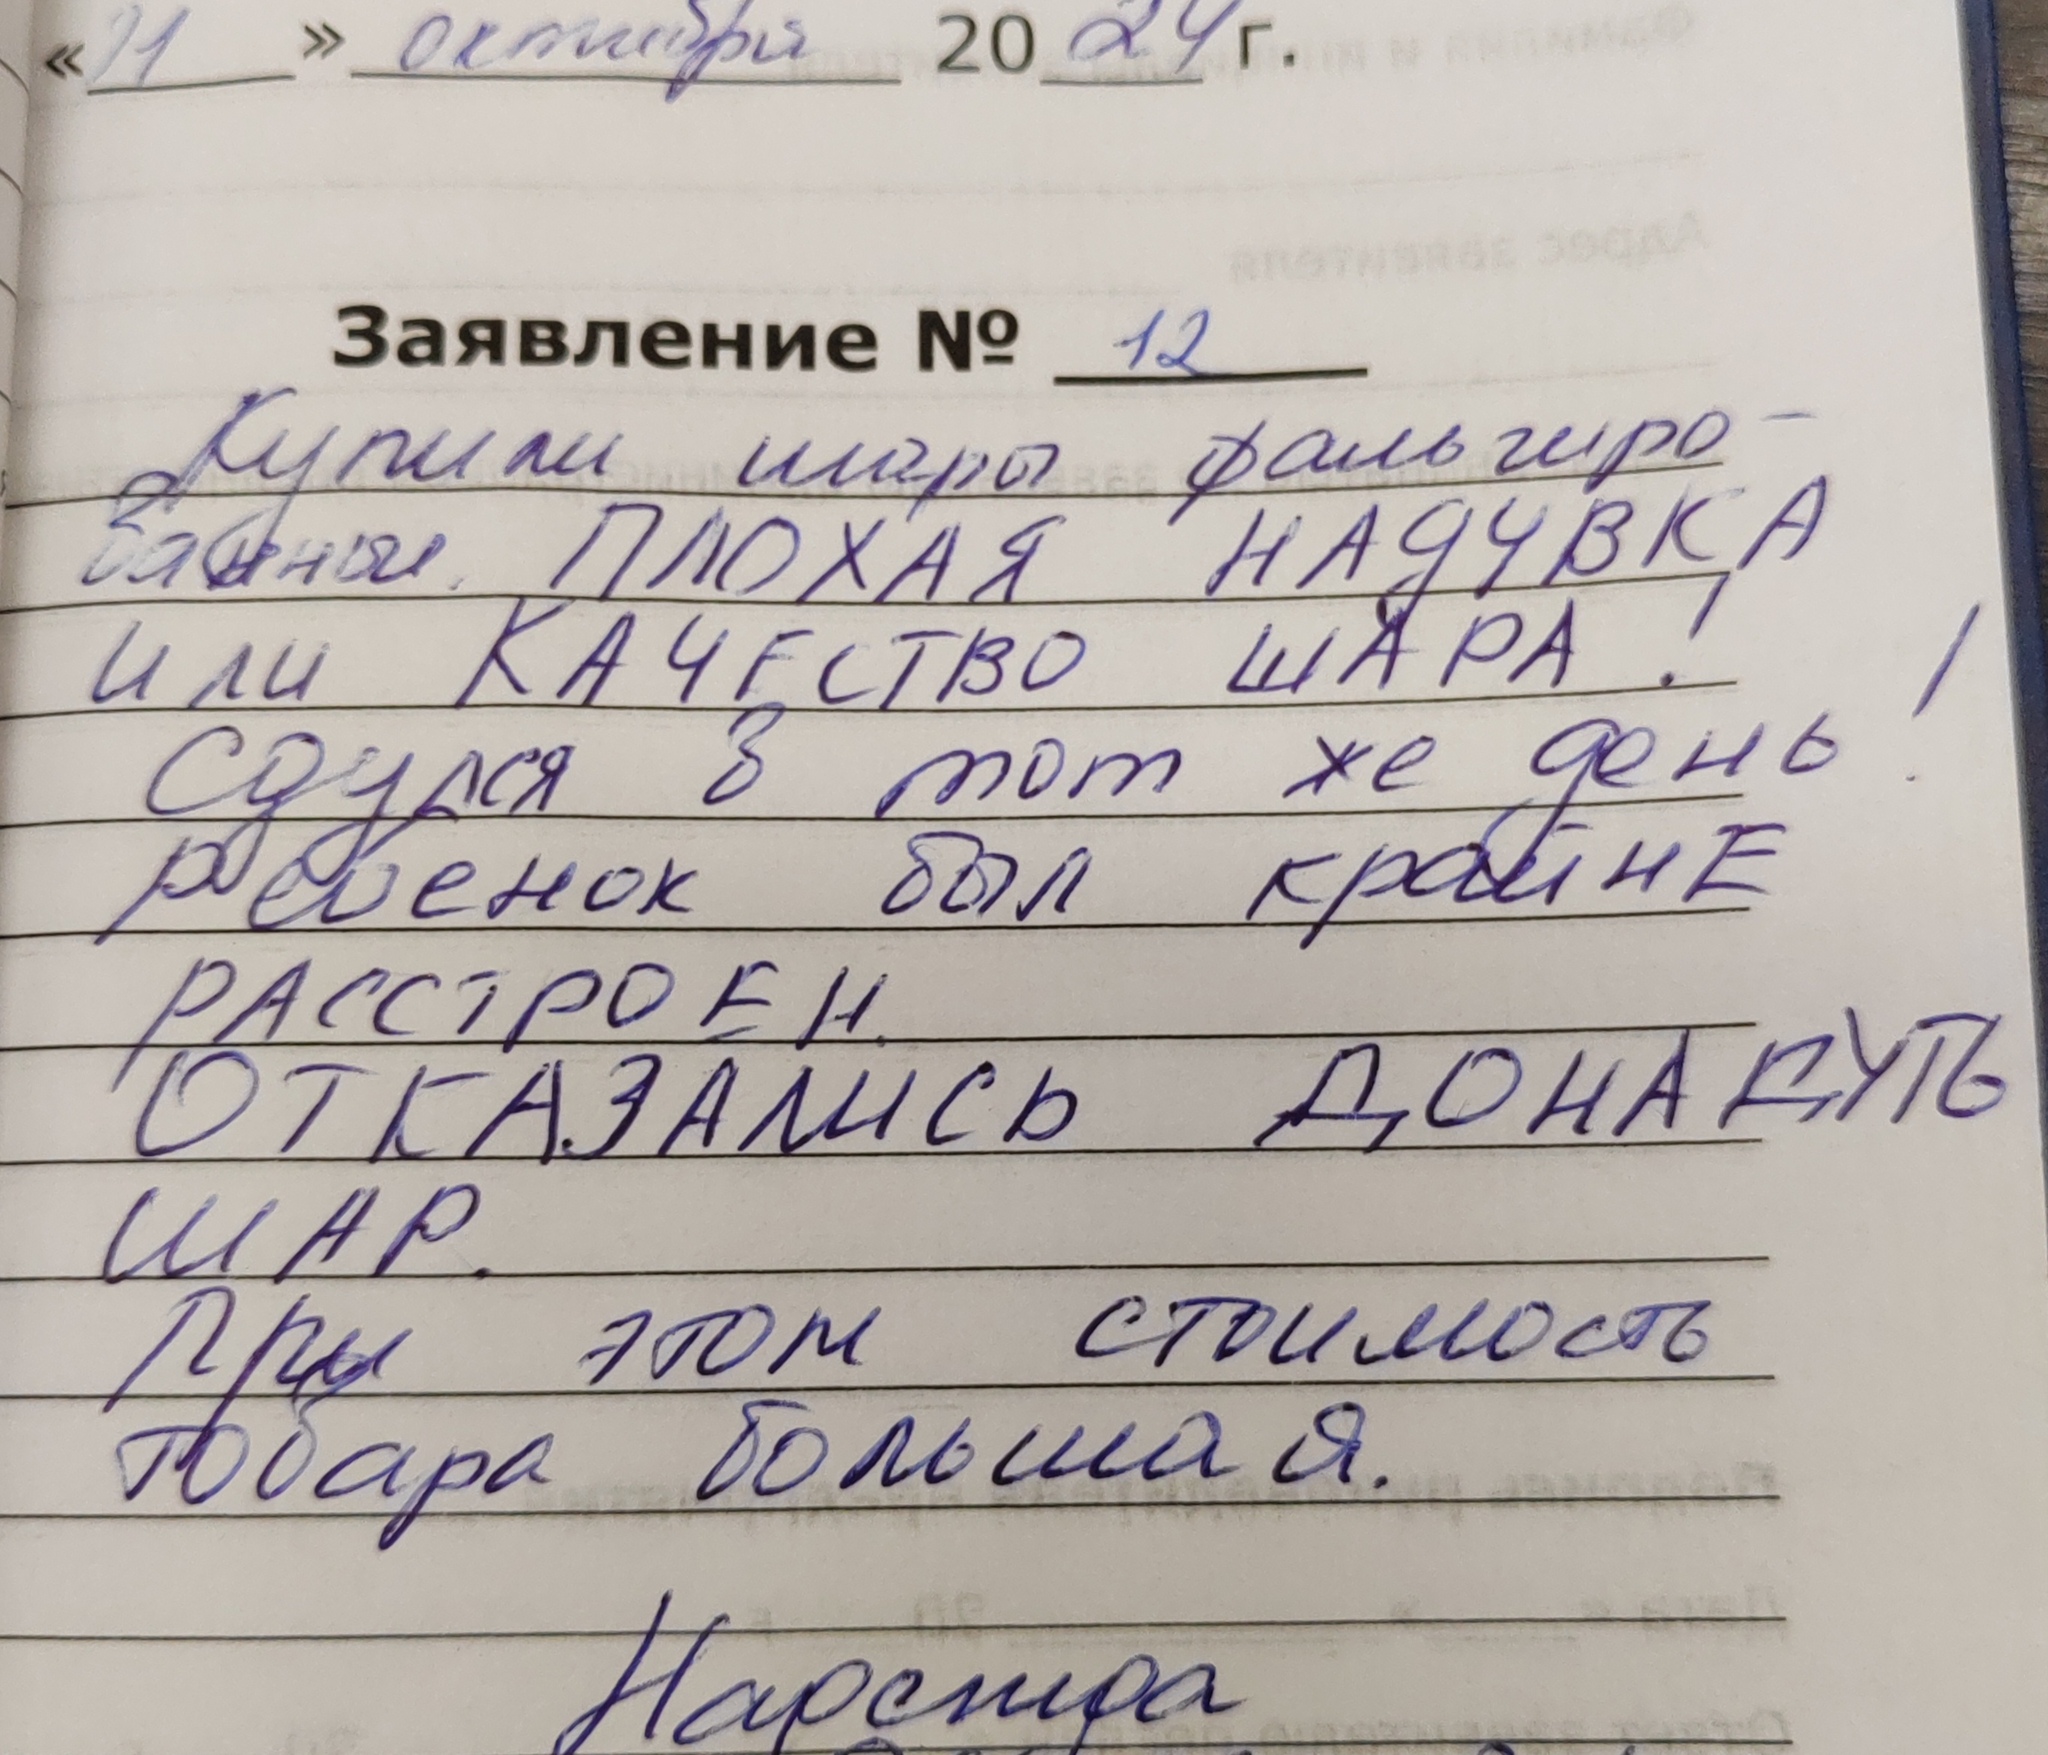 « » октября 2024 г.
Заявление № 12
Купили шары фольгиро-
ванные. ПЛОХАЯ НАДУВКА
или КАЧЕСТВО ШАРА!
Сдулся в тот же день!
ребенок был крайнЕ
РАССТРОЕН.
ОТКАЗАЛИСЬ ДОНАДУТЬ
ШАР.
При этом стоимость
товара большая.